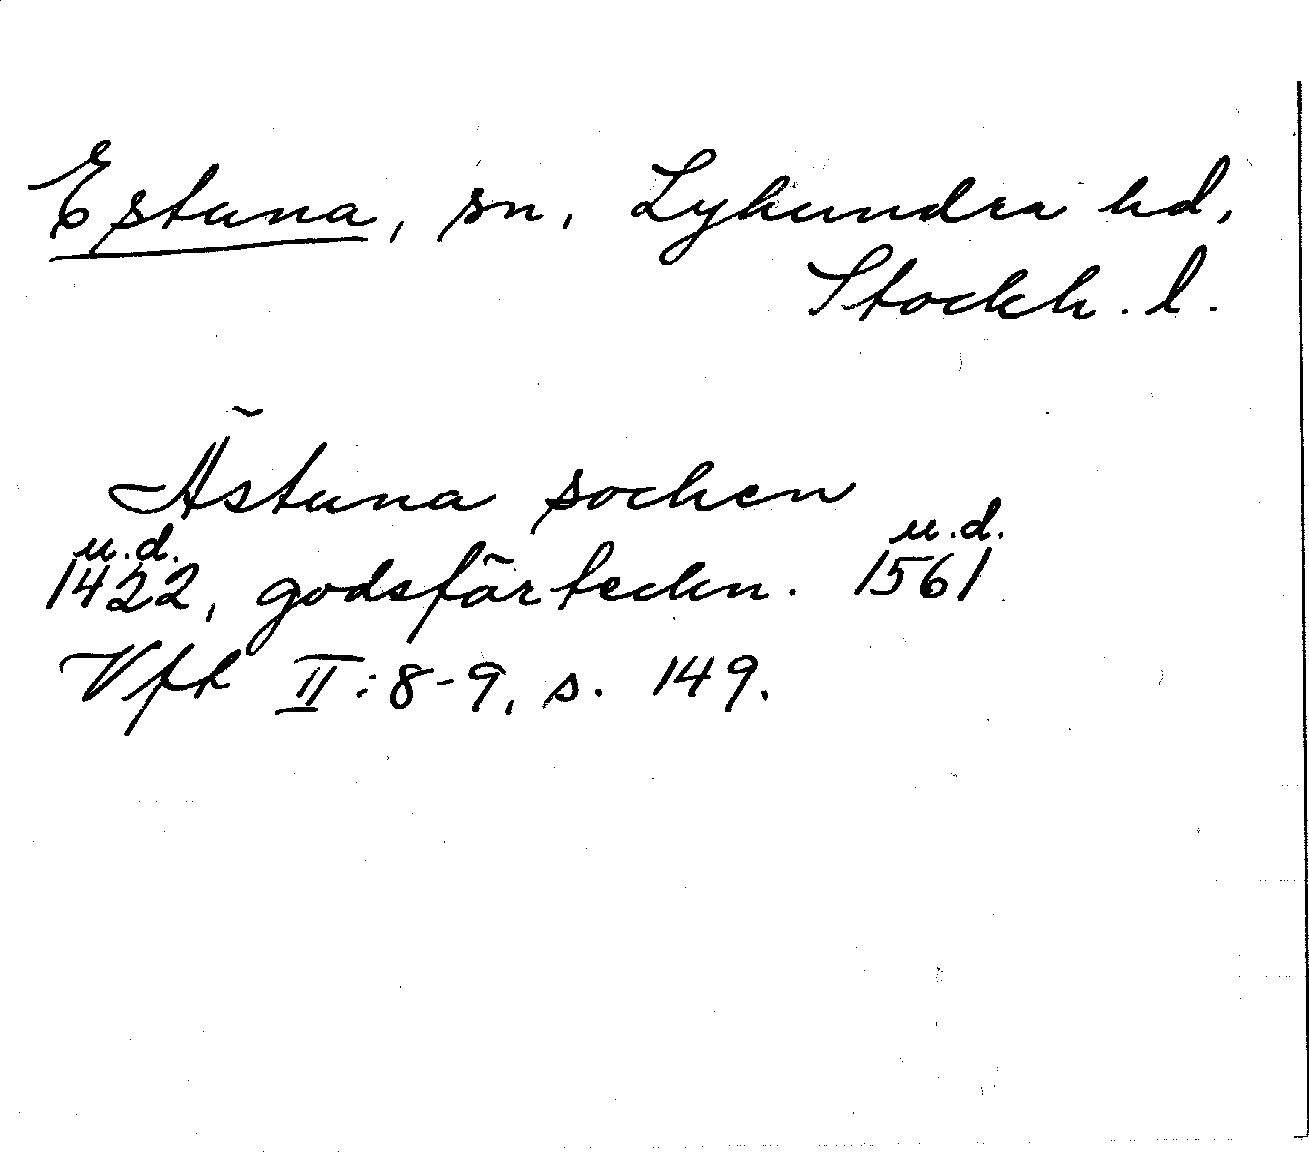 Estuna, sn, Lyhundra hd,
Stockh. l.
Ästuna sochen
u.d. u.d.
1422, godsförteckn. 1561
Vfh II:8-9, s. 149.